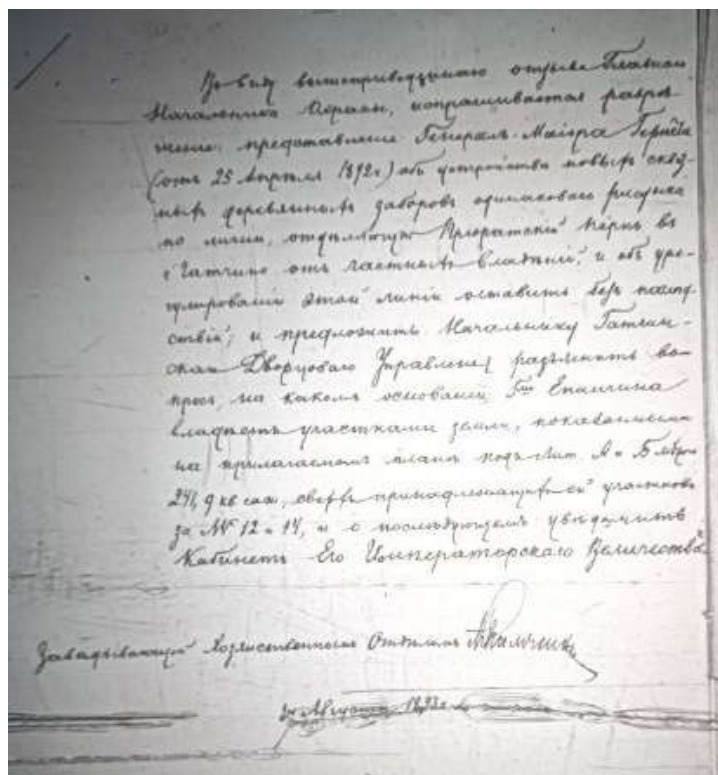 Въ виду вышеприведеннаго отзыва Главнаго
Начальника Охраны, испрашивается разрѣ-
шеніе: представленіе Генералъ-Майора
(отъ 25 Апрѣля 1892 г.) объ устройствѣ новыхъ сквоз-
ныхъ деревянныхъ заборовъ одинаковаго рисунка
по линіи, отдѣляющей Пріоратскій паркъ въ
г. Гатчино отъ частныхъ владѣній, и объ уре-
гулированіи этой линіи оставить безъ послѣд-
ствій; и предложить Начальнику Гатчин-
скаго Дворцоваго Управленія разъяснить во-
просъ, на какомъ основаніи Г-жа Епанчина
владѣетъ участками земли, показанными
на прилагаемомъ планѣ подъ Лит. А и Б мѣрою
241,9 кв саж, сверхъ принадлежащихъ ей участковъ
за №№ 12 и 14, и о послѣдующемъ увѣдомить
Кабинетъ Его Императорскаго Величества.
Завѣдывающій Хозяйственнымъ Отдѣломъ
Августа 1893 г.